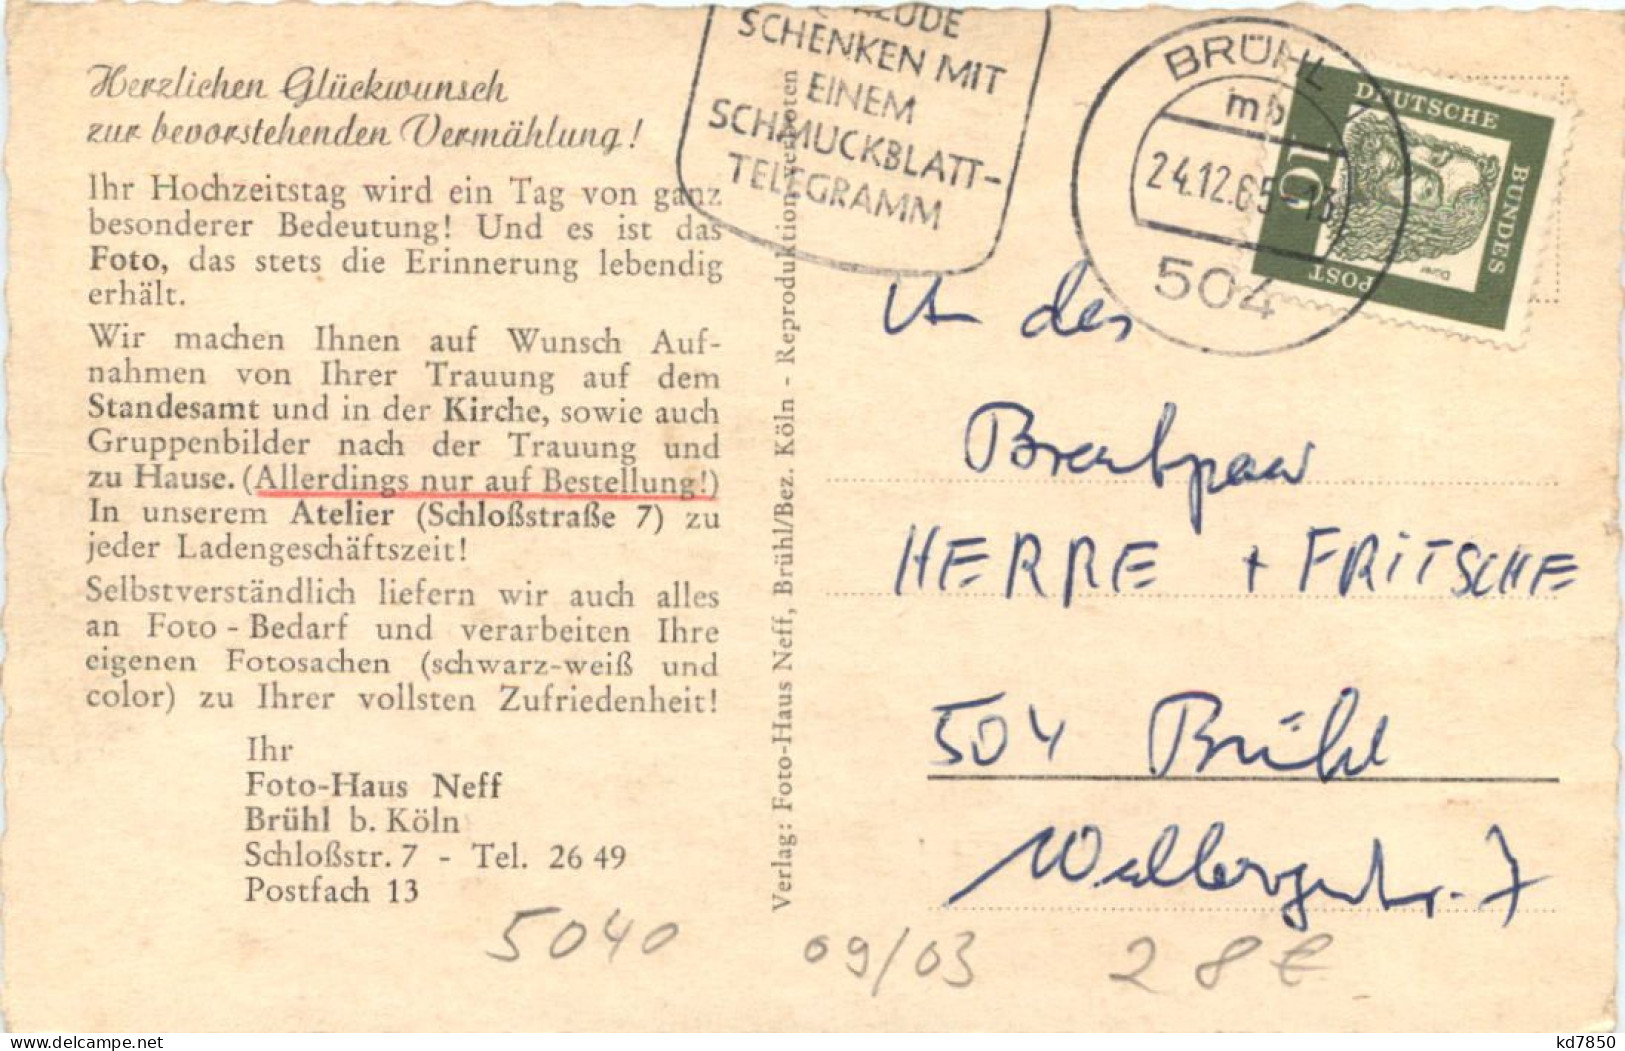 Herzlichen Glückwunsch
zur bevorstehenden Vermählung!
Ihr Hochzeitstag wird ein Tag von ganz
besonderer Bedeutung! Und es ist das
Foto, das stets die Erinnerung lebendig
erhält.
Wir machen Ihnen auf Wunsch Auf-
nahmen von Ihrer Trauung auf dem
Standesamt und in der Kirche, sowie auch
Gruppenbilder nach der Trauung und
zu Hause. (Allerdings nur auf Bestellung!)
In unserem Atelier (Schloßstraße 7) zu
jeder Ladengeschäftszeit!
Selbstverständlich liefern wir auch alles
an Foto-Bedarf und verarbeiten Ihre
eigenen Fotosachen (schwarz-weiß und
color) zu Ihrer vollsten Zufriedenheit!
Ihr
Foto-Haus Neff
Brühl b. Köln
Schloßstr. 7 - Tel. 26 49
Postfach 13
5040
09/03
28€
Verlag: Foto-Haus Neff, Brühl/Bez. Köln - Reproduktion verboten
SCHENKEN MIT
EINEM
SCHMUCKBLATT-
TELEGRAMM
BRÜHL
mb
24.12.65-13
504
DEUTSCHE
BUNDES
POST
10
Dürer
An das
Brautpaar
HERRE + FRITSCHE
504 Brühl
7
kd7850